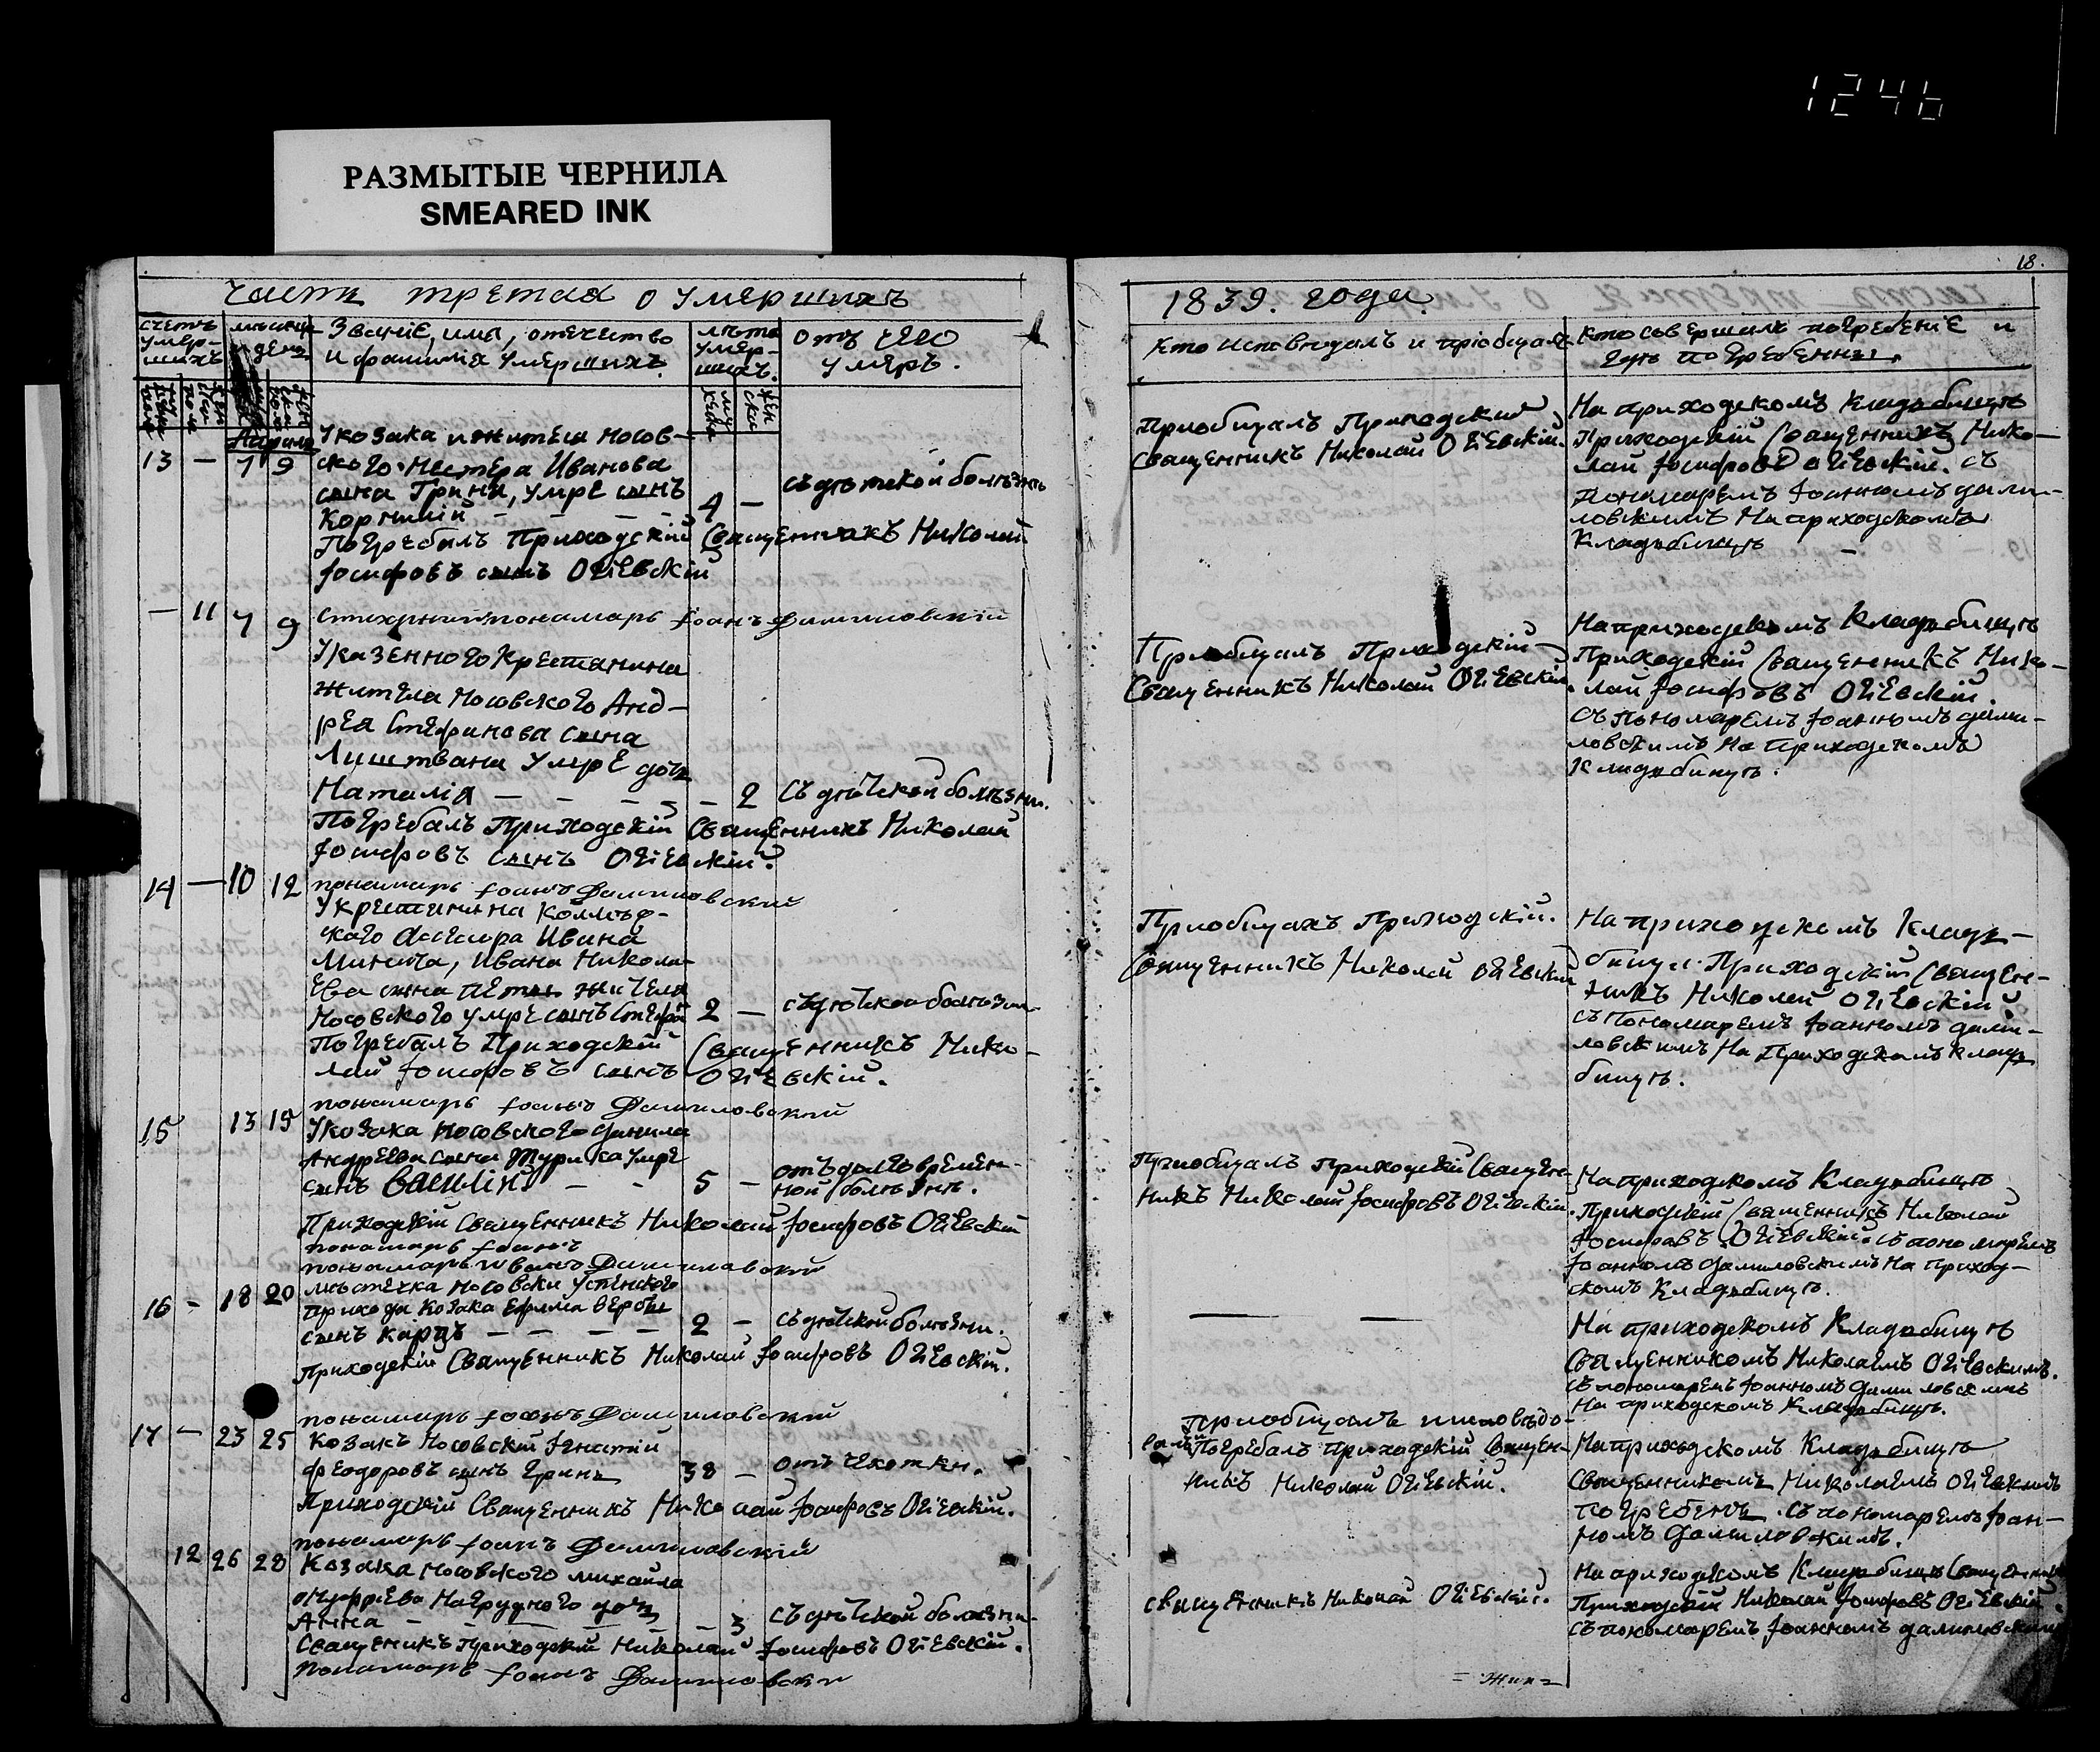 1246
РАЗМЫТЫЕ ЧЕРНИЛА
SMEARED INK
18.
Часть третая о умершихъ
1839. года
счетъ умер-шихъ
мѣсяцъ и день
Званіе, имя, отечество
и фамилія умершихъ.
лѣта умер-шихъ.
отъ чего
умеръ.
Кто исповѣдалъ и пріобщалъ
Кто совершалъ погребеніе и
гдѣ погребенны.
Априль
13 — 7 9
У козака и жителя Носов-
ского Нестера Иванова
сына Грини, умре сынъ
Корнилій — — — 4 —
съ дѣтской болѣзнь
Погребалъ Приходскій Священникъ Николай
Іосифовъ сынъ Огіевскій
Приобщалъ Приходскій
Священникъ Николай Огіевскій.
На приходскомъ Кладбищѣ
Приходскій Священникъ Нико-
лай Іосифовъ Огіевскій. съ
понамаремъ Іоанномъ Дани-
ловскимъ На приходскомъ
Кладбищѣ —
— 11 7 9
Стихарный понамарь Іоанъ Даниловскій
У казенного Крестянина
жителя Носовского Анд-
рея Стефанова сына
Лиштвана умре дочь
Наталія — — — — — 2 съ дѣтской болѣзни.
Погребалъ Приходскій Священникъ Николай
Іосифовъ сынъ Огіевскій.
Приобщалъ Приходскій
Священникъ Николай Огіевскій.
На приходскомъ Кладбищѣ
Приходскій Священникъ Нико-
лай Іосифовъ Огіевскій.
съ Пономаремъ Іоанномъ Дани-
ловскимъ На приходскомъ
Кладбищѣ.
14 — 10 12
понамарь Іоанъ Даниловский
У крестянина Коллеж-
ского Ассесора Ивана
Минича, Ивана Никола-
ева сына жителя
Носовского умре сынъ Стефанъ 2 — съ дѣтской болѣзни
Погребалъ Приходскій Священникъ Нико-
лай Іосифовъ сынъ Огіевскій.
Приобщалъ Приходскій.
Священникъ Николай Огіевский
На приходскомъ Кладь-
бищи. Приходскій Священ-
никъ Николай Огіевскій.
съ Пономаремъ Іоанномъ Дани-
ловскимъ На Приходскомъ кладь
бищѣ.
понамарь Іоанъ Даниловский
15 13 15
У козака Носовского Данила
Андреева сына Турика умре
сынъ Василій — — 5 — отъ долговремен-
ной болѣзнь.
Приходскій Священникъ Николай Іосифовъ Огіевский
понамарь Іоанъ
понамарь Иванъ Даниловский
Приобщалъ приходскій Священ-
никъ Николай Іосифовъ Огіевскій.
На приходскомъ Кладбищѣ
Приходскій Священникъ Николай
Іосифовъ Огіевскій. съ пономаремъ
Іоанномъ Даниловскимъ На приход-
скомъ Кладбищѣ.
16 — 18 20
мѣстечка Носовки Успенского
прихода козака Ефрема Вербы
сынъ Карпъ — — — — 2 — съ дѣтской болѣзни.
приходскій Священникъ Николай Іосифовъ Огіевскій.
— —
На приходскомъ Кладбищѣ
Священникомъ Николаемъ Огіевскимъ.
съ пономаремъ Іоанномъ Даниловскимъ
На приходскомъ Кладбищѣ.
понамарь Іоанъ Даниловский
17 — 23 25
Козакъ Носовскій Игнатій
Феодоровъ сынъ Гринь 38 — отъ чахотки.
Приходскій Священникъ Николай Іосифовъ Огіевскій.
приобщалъ исповѣдо-
валъ Погребалъ приходскій Священ-
никъ Николай Огіевскій.
На приходскомъ Кладбищѣ
Священникомъ Николаемъ Огіевскимъ
погребенъ. съ пономаремъ Іоан-
номъ Даниловскимъ.
понамарь Іоанъ Даниловский
12 26 28
Козака Носовского Михаила
Онуфріева Нагрудного дочь
Анна — — — — — 3 съ дѣтской болезни.
Священикъ приходскій Николай Іосифовъ Огіевскій.
понамарь Іоанъ Даниловски
священникъ Николай Огіевскій.
На приходскомъ Кладбищѣ Священникъ
Приходскій Николай Іосифовъ Огіевскій.
съ пономаремъ Іоанномъ Даниловскимъ